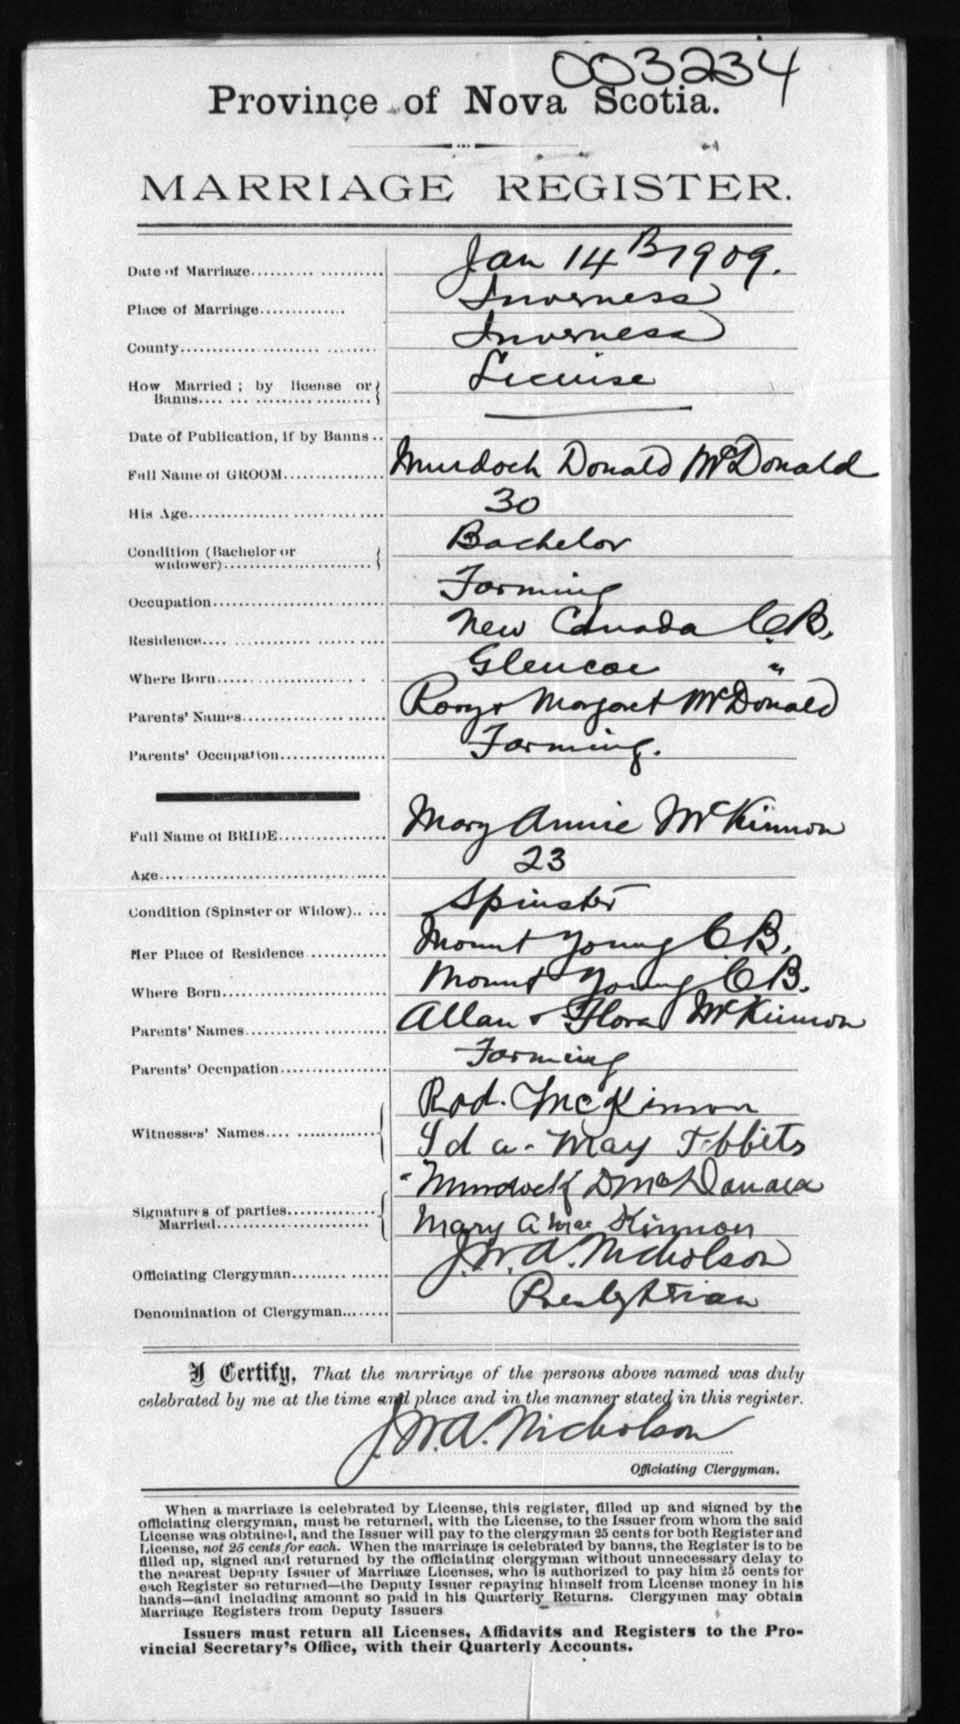 003234
Province of Nova Scotia.
MARRIAGE REGISTER.
Date of Marriage.................... Jan 14th 1909.
Place of Marriage.............. Inverness
County............................... Inverness
How Married; by license or Banns.................... License
Date of Publication, if by Banns.. ———
Full Name of GROOM................ Murdoch Donald McDonald
His Age............................... 30
Condition (Bachelor or widower)........................ Bachelor
Occupation............................ Farming
Residence............................. New Canada C.B.
Where Born........................... Glencoe "
Parents' Names...................... Rory & Margaret McDonald
Parents' Occupation................. Farming.
Full Name of BRIDE................. Mary Annie McKinnon
Age..................................... 23
Condition (Spinster or Widow)..... Spinster
Her Place of Residence............. Mount Young C.B.
Where Born........................... Mount Young C.B.
Parents' Names...................... Allan & Flora McKinnon
Parents' Occupation................. Farming
Witnesses' Names.................... Rod. McKinnon
Ida - May Tibbits
Signatures of parties Married........................ Murdock D McDonald
Mary A Mac Kinnon
Officiating Clergyman............... J. W. A. Nicholson
Denomination of Clergyman........ Presbyterian
I Certify, That the marriage of the persons above named was duly
celebrated by me at the time and place and in the manner stated in this register.
J. W. A. Nicholson
Officiating Clergyman.
When a marriage is celebrated by License, this register, filled up and signed by the
officiating clergyman, must be returned, with the License, to the Issuer from whom the said
License was obtained, and the Issuer will pay to the clergyman 25 cents for both Register and
License, not 25 cents for each. When the marriage is celebrated by banns, the Register is to be
filled up, signed and returned by the officiating clergyman without unnecessary delay to
the nearest Deputy Issuer of Marriage Licenses, who is authorized to pay him 25 cents for
each Register so returned—the Deputy Issuer repaying himself from License money in his
hands—and including amount so paid in his Quarterly Returns. Clergymen may obtain
Marriage Registers from Deputy Issuers
Issuers must return all Licenses, Affidavits and Registers to the Pro-
vincial Secretary's Office, with their Quarterly Accounts.